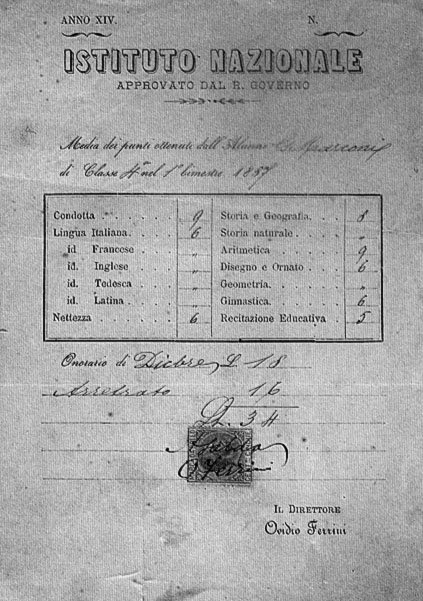 ANNO XIV. N.
ISTITUTO NAZIONALE
APPROVATO DAL R. GOVERNO
Media dei punti ottenuti dall'Alunno G. Marconi
di Classe 4ª nel 1º bimestre 188
Condotta . . . . . 9 Storia e Geografia. . . 8
Lingua Italiana. . . . 6 Storia naturale . . . . „
id. Francese . . . „ Aritmetica . . . . . 9
id. Inglese . . . . „ Disegno e Ornato . . . 6
id. Tedesca . . . . „ Geometria. . . . . „
id. Latina . . . . „ Ginnastica . . . . . 6
Nettezza . . . . . 6 Recitazione Educativa . 5
Onorario di Dicbre £ 18
Arretrato 16
34
O Ferrini
IL DIRETTORE
Ovidio Ferrini